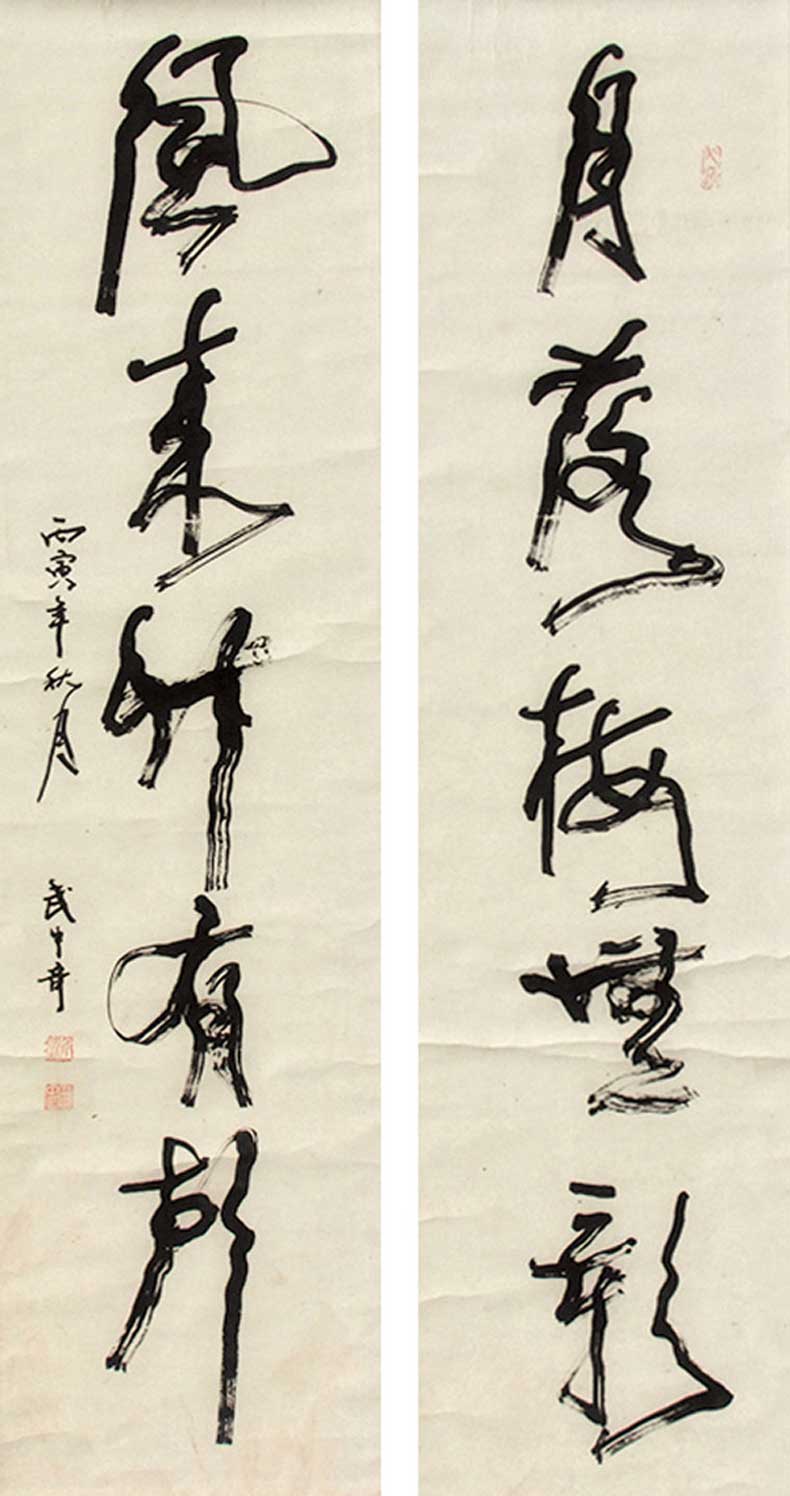 月落梅無影
風來竹有聲
丙寅年秋月 武中奇